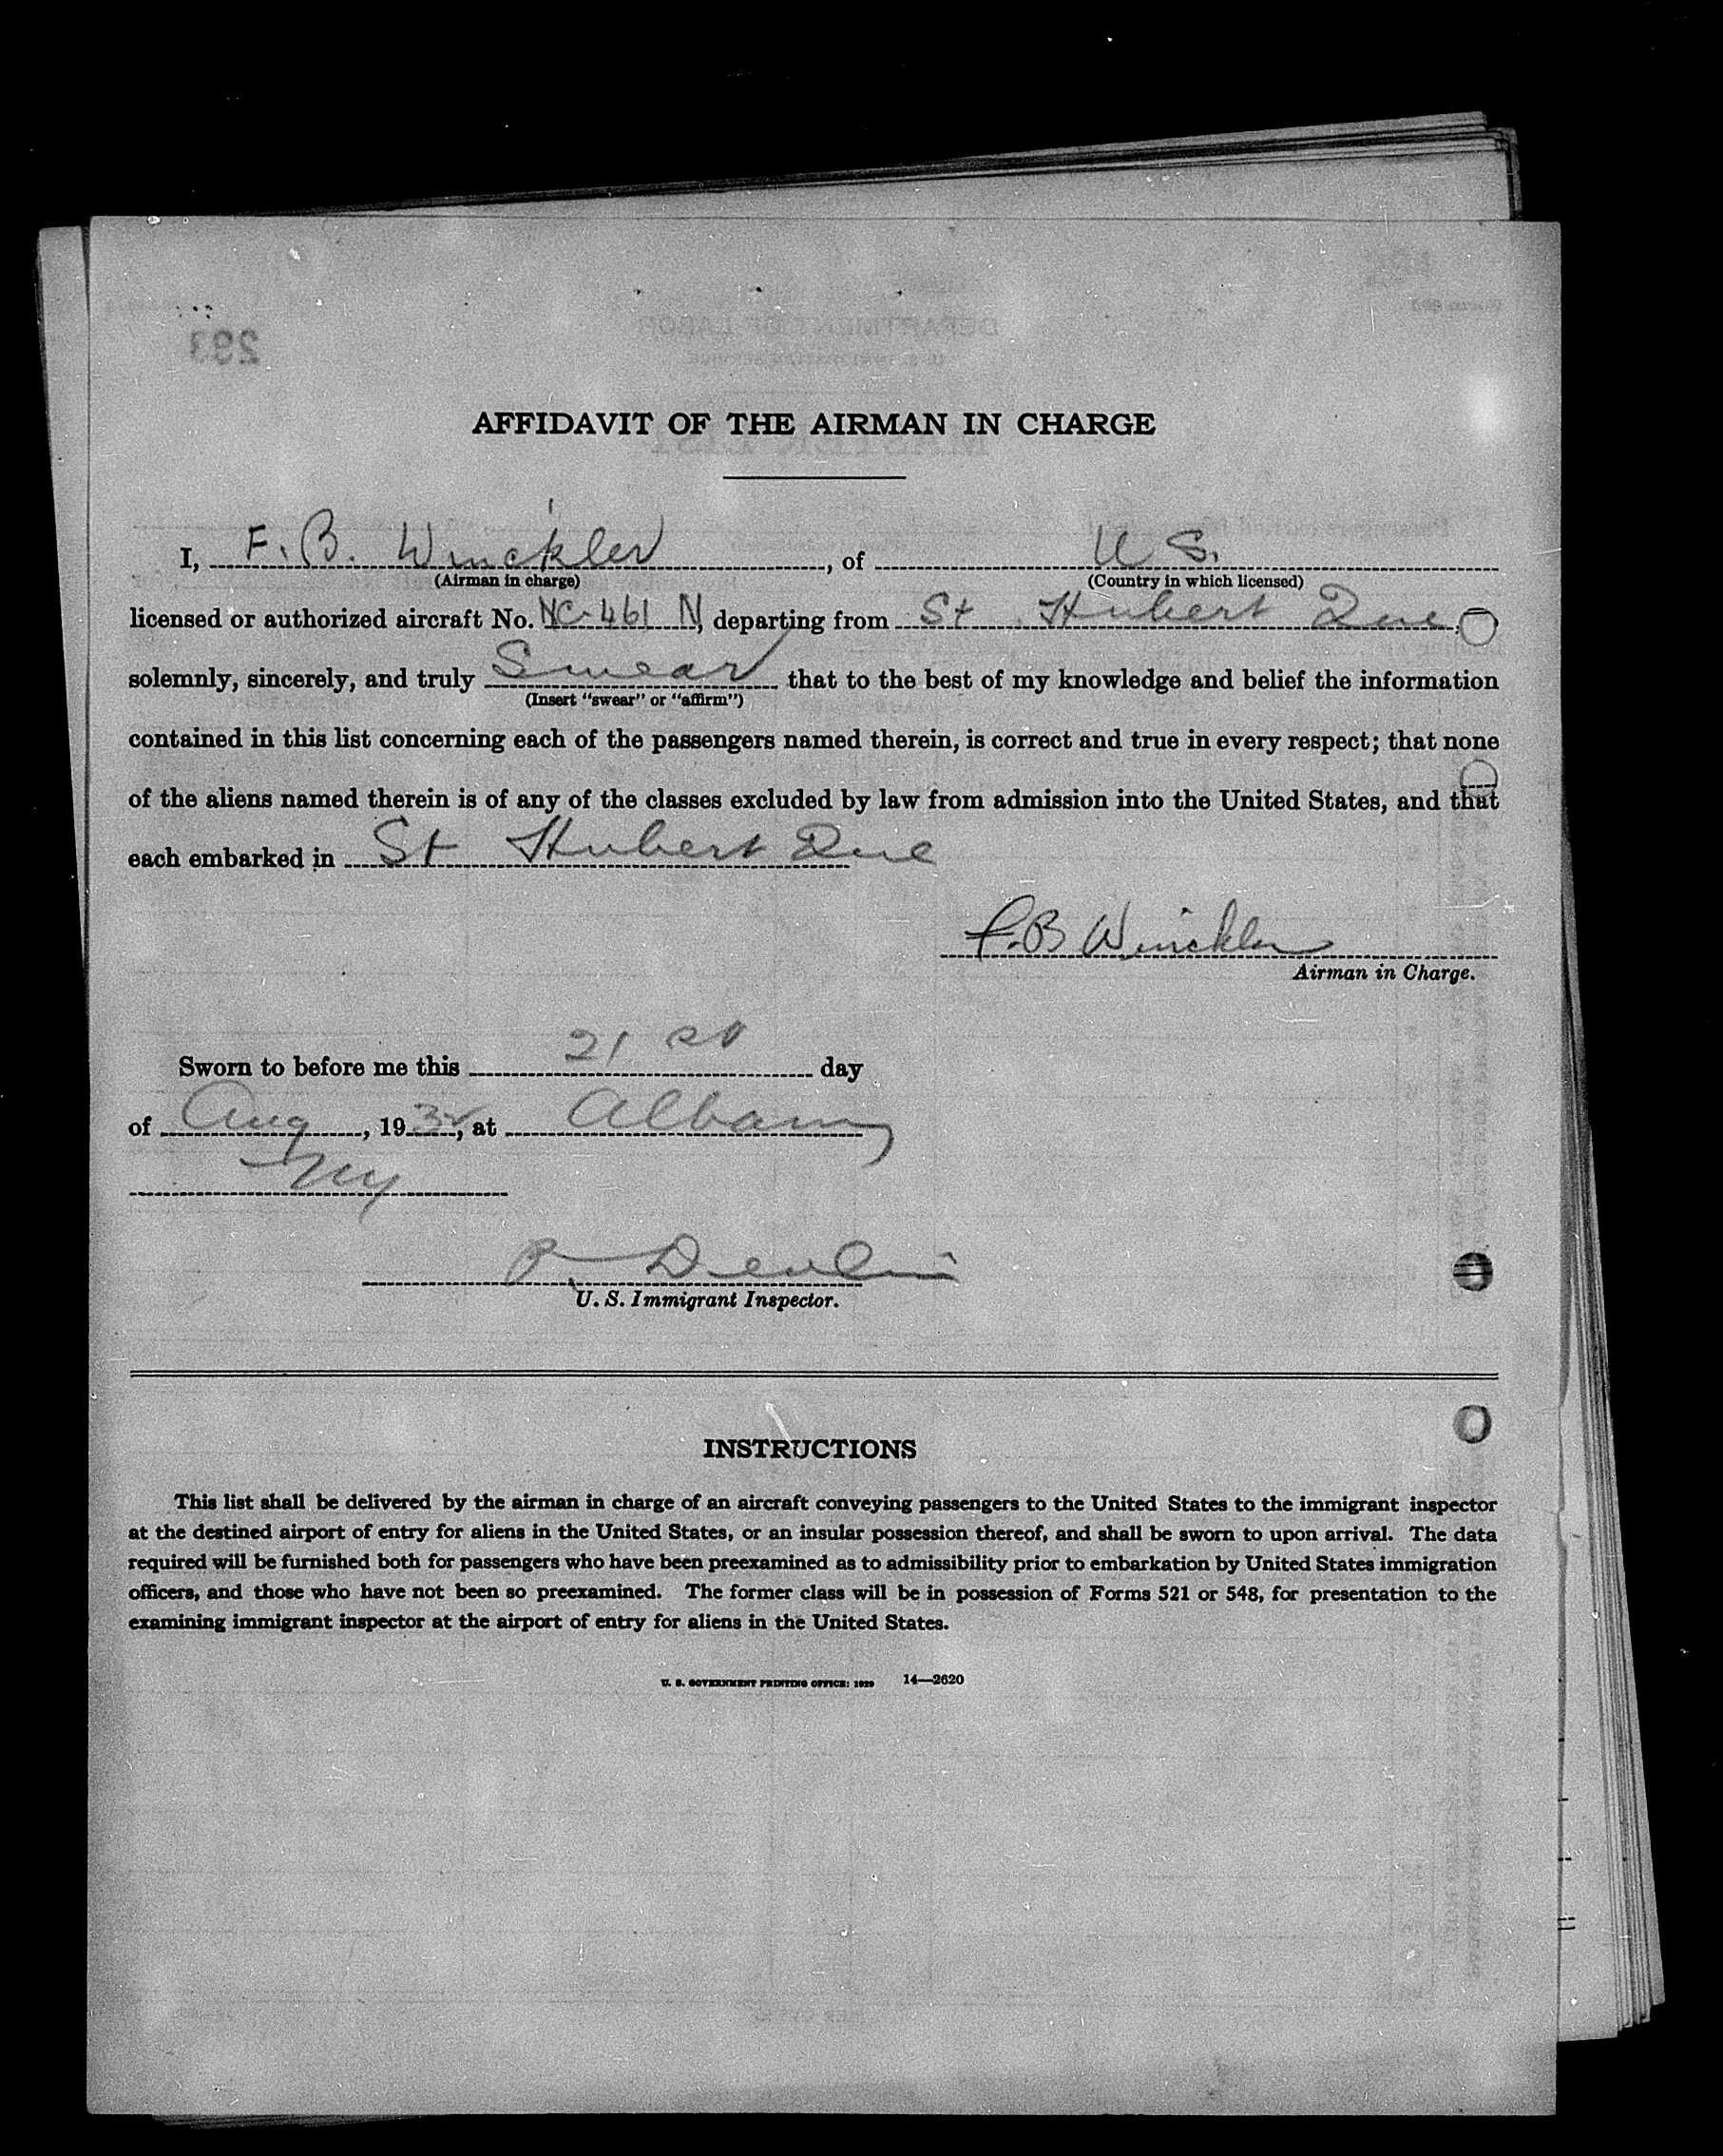 293
DEPARTMENT OF LABOR
AFFIDAVIT OF THE AIRMAN IN CHARGE
I, F. B. Winckler, of U S.
(Airman in charge) (Country in which licensed)
licensed or authorized aircraft No. NC-461 N, departing from St. Hubert Que,
solemnly, sincerely, and truly Swear that to the best of my knowledge and belief the information
(Insert "swear" or "affirm")
contained in this list concerning each of the passengers named therein, is correct and true in every respect; that none
of the aliens named therein is of any of the classes excluded by law from admission into the United States, and that
each embarked in St Hubert Que
F. B Winckler
Airman in Charge.
Sworn to before me this 21 day
of Aug, 1932, at Albany
NY
P Devlin
U. S. Immigrant Inspector.
INSTRUCTIONS
This list shall be delivered by the airman in charge of an aircraft conveying passengers to the United States to the immigrant inspector
at the destined airport of entry for aliens in the United States, or an insular possession thereof, and shall be sworn to upon arrival. The data
required will be furnished both for passengers who have been preexamined as to admissibility prior to embarkation by United States immigration
officers, and those who have not been so preexamined. The former class will be in possession of Forms 521 or 548, for presentation to the
examining immigrant inspector at the airport of entry for aliens in the United States.
U. S. GOVERNMENT PRINTING OFFICE: 1929 14—2620